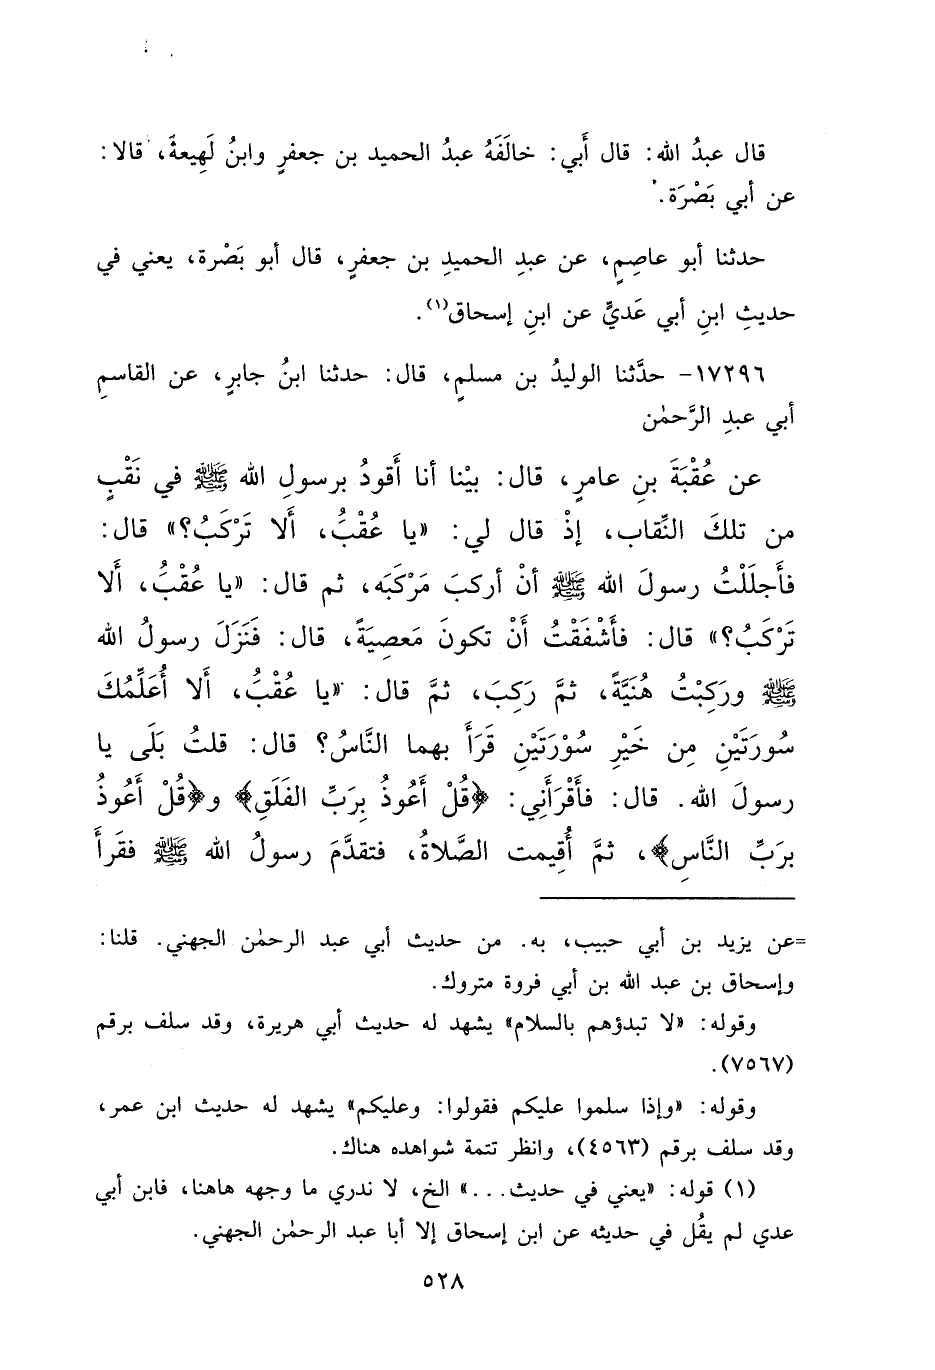 قال عبدُ الله: قال أَبي: خالَفَهُ عبدُ الحميد بن جعفرٍ وابنُ لَهِيعةَ، قالا:
عن أبي بَصْرَة.
حدثنا أبو عاصِمٍ، عن عبدِ الحميدِ بن جعفرٍ، قال أبو بَصْرة، يعني في
حديثِ ابنِ أبي عَديٍّ عن ابنِ إسحاق(١).
١٧٢٩٦- حدَّثنا الوليدُ بن مسلمٍ، قال: حدثنا ابنُ جابرٍ، عن القاسمِ
أبي عبدِ الرَّحمٰن
عن عُقْبَةَ بنِ عامرٍ، قال: بيْنا أنا أَقودُ برسولِ الله ﷺ في نَقْبٍ
من تلكَ النِّقاب، إذْ قال لي: «يا عُقْبُ، أَلا تَرْكَبُ؟» قال:
فأَجلَلْتُ رسولَ الله ﷺ أنْ أركبَ مَرْكَبَه، ثم قال: «يا عُقْبُ، أَلا
تَرْكَبُ؟» قال: فأَشْفَقْتُ أَنْ تكونَ مَعصِيَةً، قال: فَنَزَلَ رسولُ الله
ﷺ ورَكِبْتُ هُنَيَّةً، ثمَّ رَكِبَ، ثمَّ قال: «يا عُقْبُ، أَلا أُعَلِّمُكَ
سُورَتَيْنِ مِن خَيْرِ سُوْرَتَيْنِ قَرَأَ بهما النَّاسُ؟ قال: قلتُ بَلَى يا
رسولَ الله. قال: فأَقْرَأَنِي: ﴿قُلْ أَعُوذُ بِرَبِّ الفَلَقِ﴾ و﴿قُلْ أَعُوذُ
بِرَبِّ النَّاسِ﴾، ثمَّ أُقِيمت الصَّلاةُ، فتقدَّمَ رسولُ الله ﷺ فقَرأَ
=عن يزيد بن أبي حبيب، به. من حديث أبي عبد الرحمٰن الجهني. قلنا:
وإسحاق بن عبد الله بن أبي فروة متروك.
وقوله: «لا تبدؤهم بالسلام» يشهد له حديث أبي هريرة، وقد سلف برقم
(٧٥٦٧).
وقوله: «وإذا سلموا عليكم فقولوا: وعليكم» يشهد له حديث ابن عمر،
وقد سلف برقم (٤٥٦٣)، وانظر تتمة شواهده هناك.
(١) قوله: «يعني في حديث...» الخ، لا ندري ما وجهه هاهنا، فابن أبي
عدي لم يقُل في حديثه عن ابن إسحاق إلا أبا عبد الرحمٰن الجهني.
٥٢٨